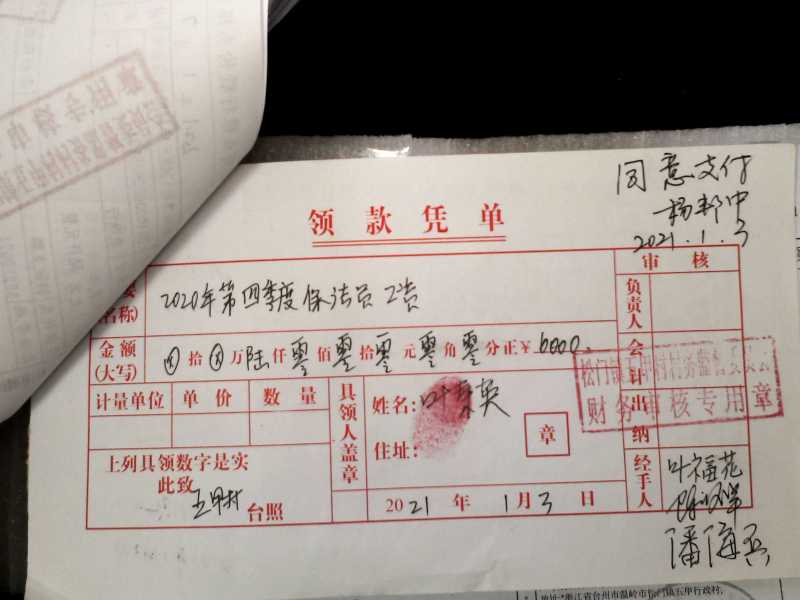 同意支付
2021.1.3
领款凭单
审核
名称)
2020年第四季度保洁员工资
负责人
金额
(大写)
拾 万 陆 仟 零 佰 零 拾 零 元 零 角 零 分正¥ 6000.
会计
松门镇五甲村村务监督委员会
财务审核专用章
计量单位 单价 数量
具领人盖章
姓名: 叶 英
住址:
章
出纳
上列具领数字是实
此致
五甲村 台照
2021 年 1 月 3 日
经手人
叶福花
潘海兵
地址:浙江省台州市温岭市松门镇五甲行政村,